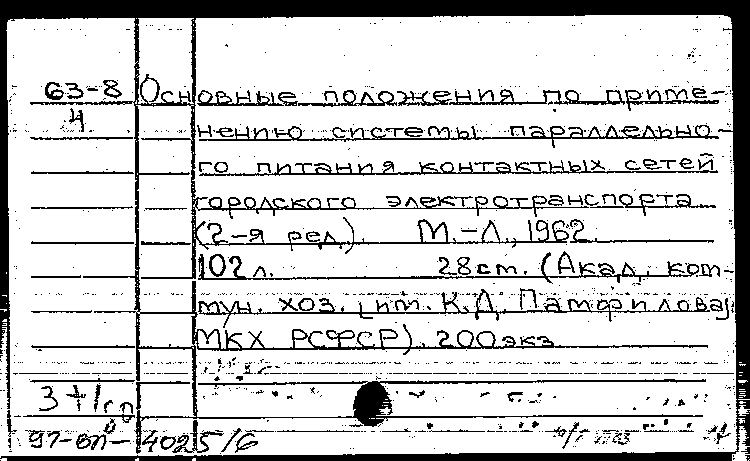 63-8 Основные положения по приме-
4 нению системы параллельно-
го питания контактных сетей
городского электротранспорта
(2-я ред.). М.-Л., 1962.
102 л. 28 см. (Акад. ком-
мун. хоз. им. К.Д. Памфилова
МКХ РСФСР). 200 экз
97-оп- 4025/6